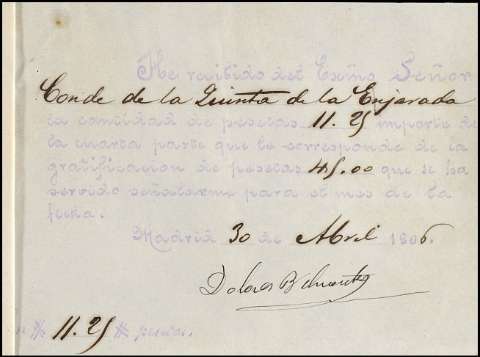 He recibido del Exmo Señor
Conde de la Quinta de la Enjarada
la cantidad de pesetas 11.25 importe de
la cuarta parte que le corresponde de la
gratificacion de pesetas 45.00 que se ha
servido señalarme para el mes de la
fecha.
Madrid 30 de Abril 1906.
Dolores
11.25 pesetas.